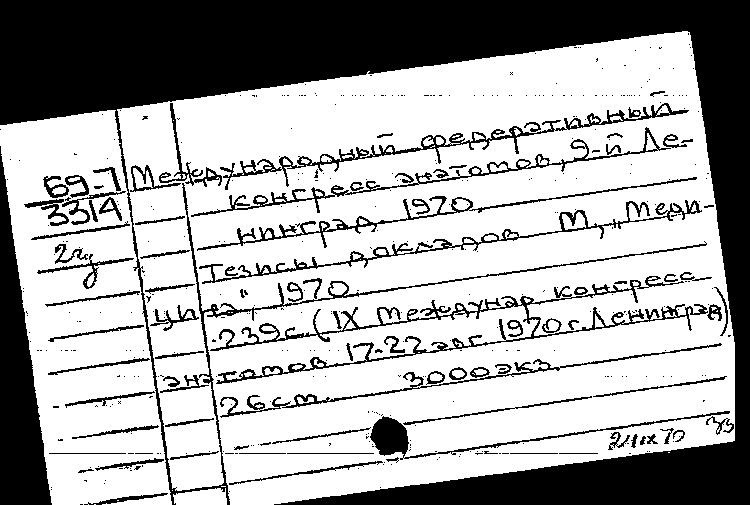 69-7
3314
Международный федеративный
конгресс анатомов, 9-й. Ле-
нинград. 1970.
Тезисы докладов М., „Меди-
цина", 1970.
239с. (IX Междунар конгресс
анатомов. 17-22 авг. 1970 г. Ленинград)
26 cm. 3000 экз.